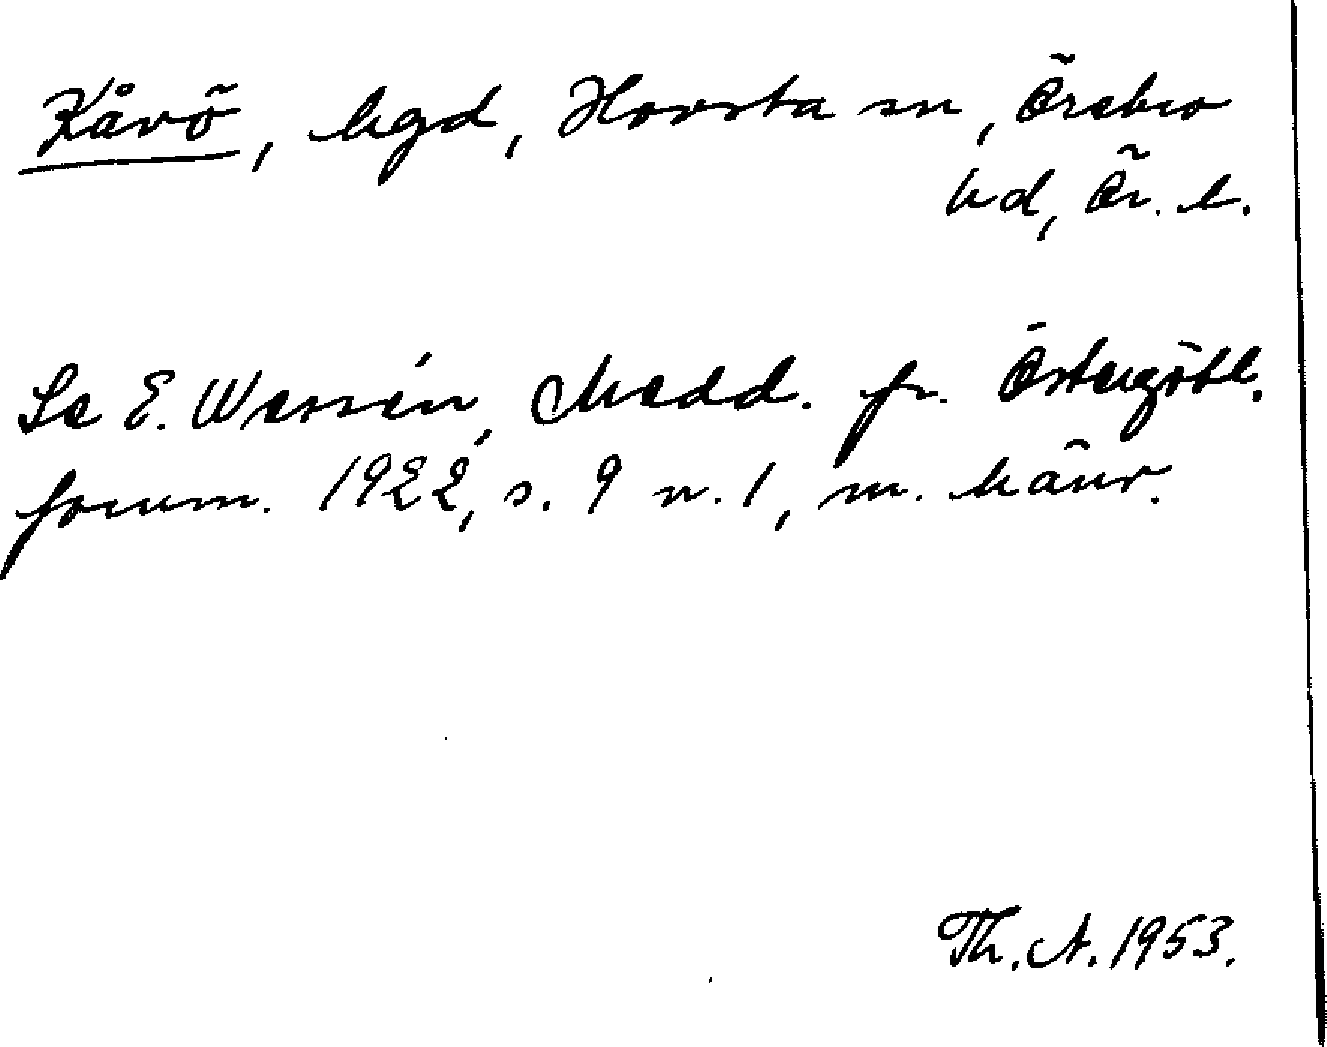 Kårö, hgd, Hovsta sn, Örebro
hd, Ör. l.
Se E. Wessén, Medd. fr. Östergötl.
fornm. 1922, s. 9 n. 1, m. hänv.
Th. A. 1953.